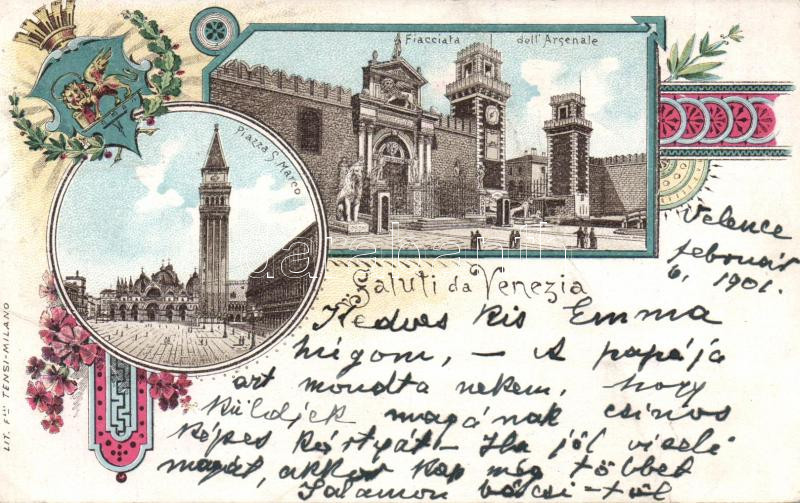 Fiacciata dell'Arsenale
Piazza S. Marco
Saluti da Venezia
LIT. F.lli TENSI-MILANO
Velence
február
6, 1901.
Kedves kis Emma
húgom, – A papája
azt mondta nekem, hogy
küldjek magának csinos
képes kártyát – Ha jól viseli
magát, akkor kap még többet
Salamon bácsi-tól